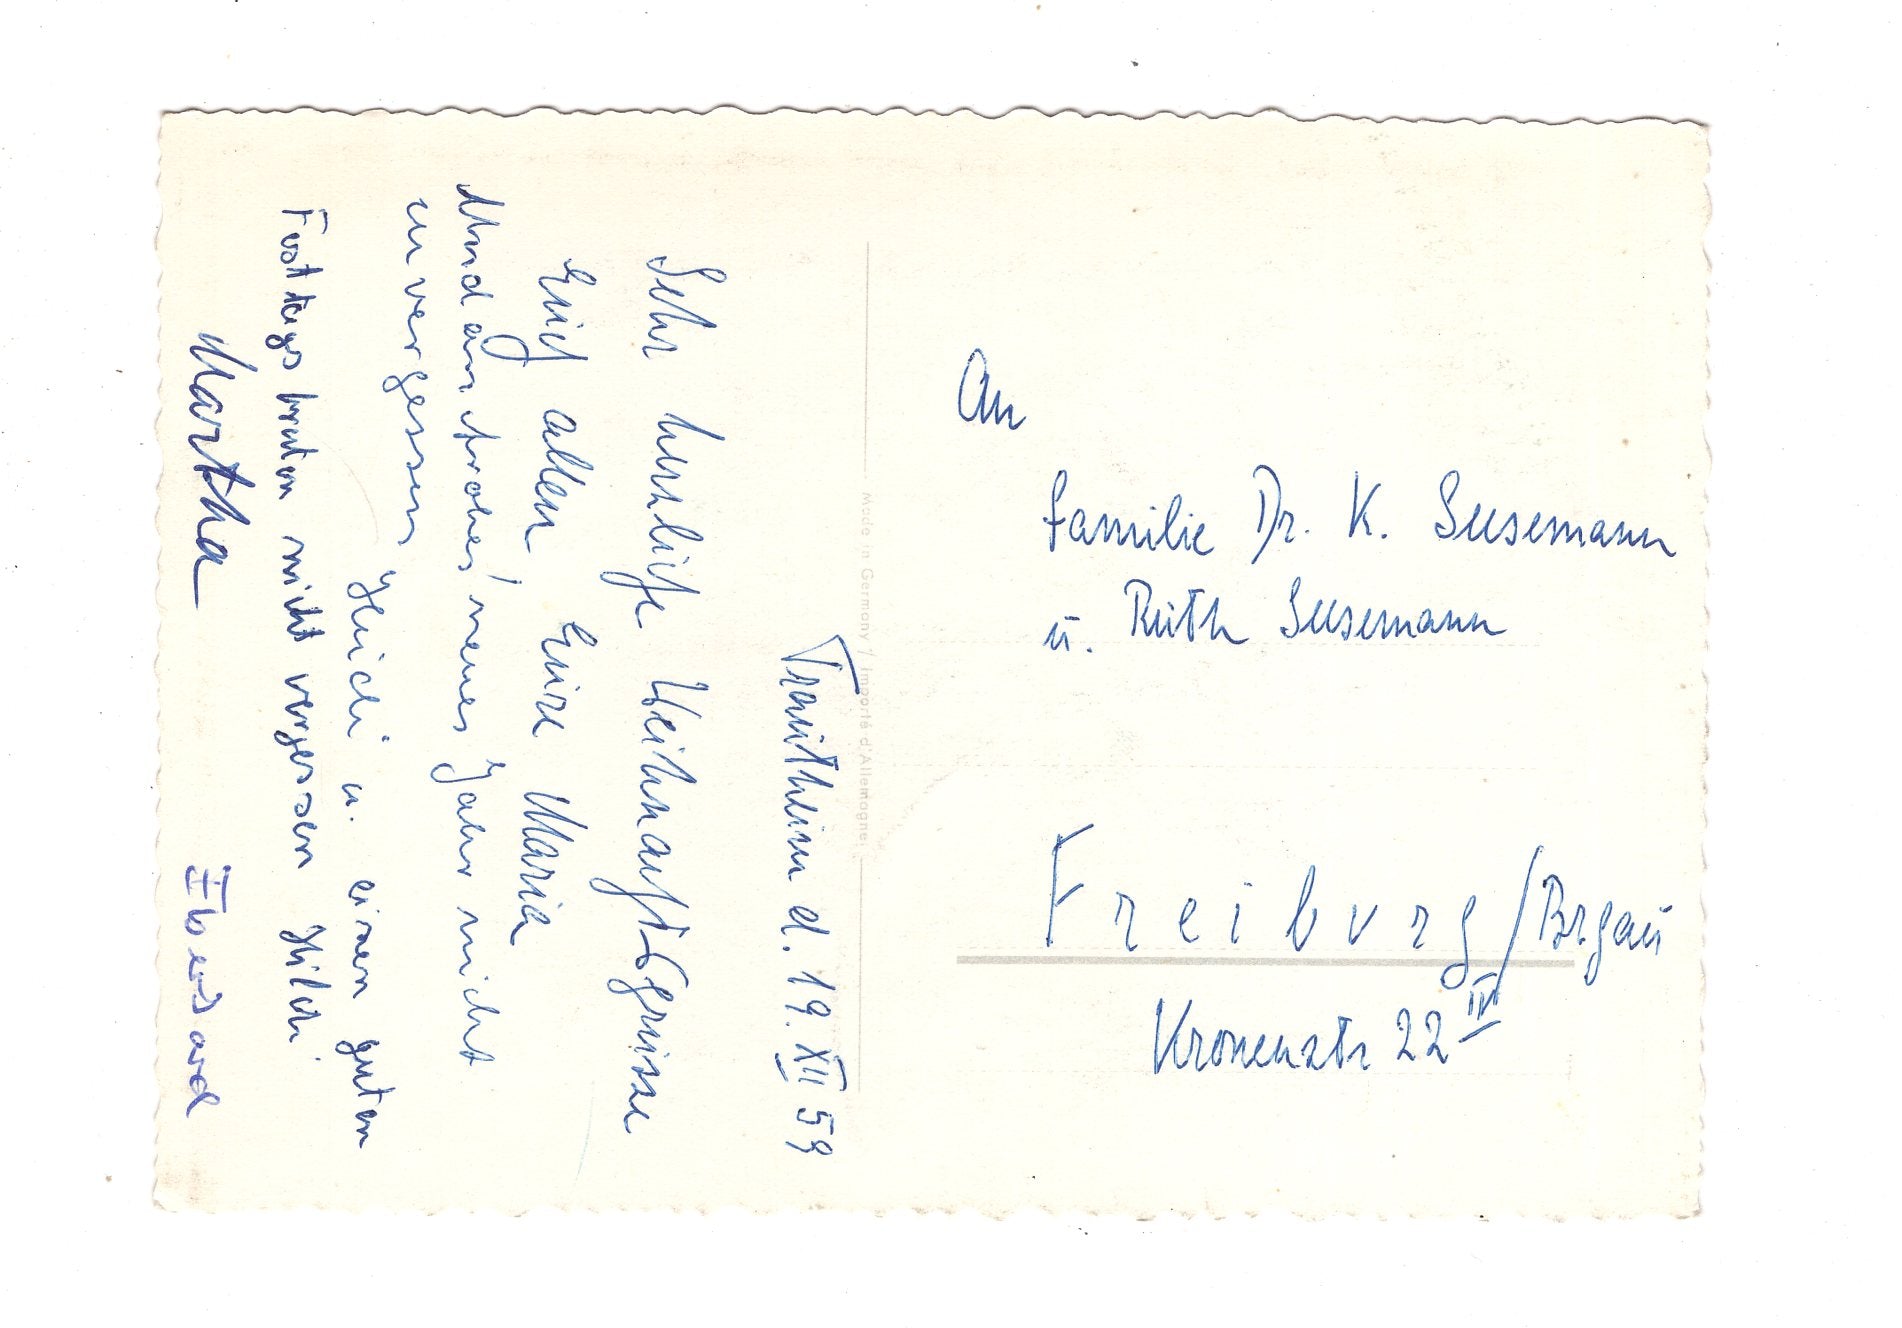 Trautheim d. 19. XII 59
Sehr herzliche Weihnachtsgrüsse
Euch allen Eure Maria
Und ein frohes neues Jahr nicht
zu vergessen
Heidi u. einen guten
Festtagsbraten nicht vergessen Hildi
Martha Eberhard
Made in Germany / Importé d'Allemagne
An
Familie Dr. K. Susemann
u. Ruth Susemann
Freiburg/Brgau
Kronenstr 22 IV